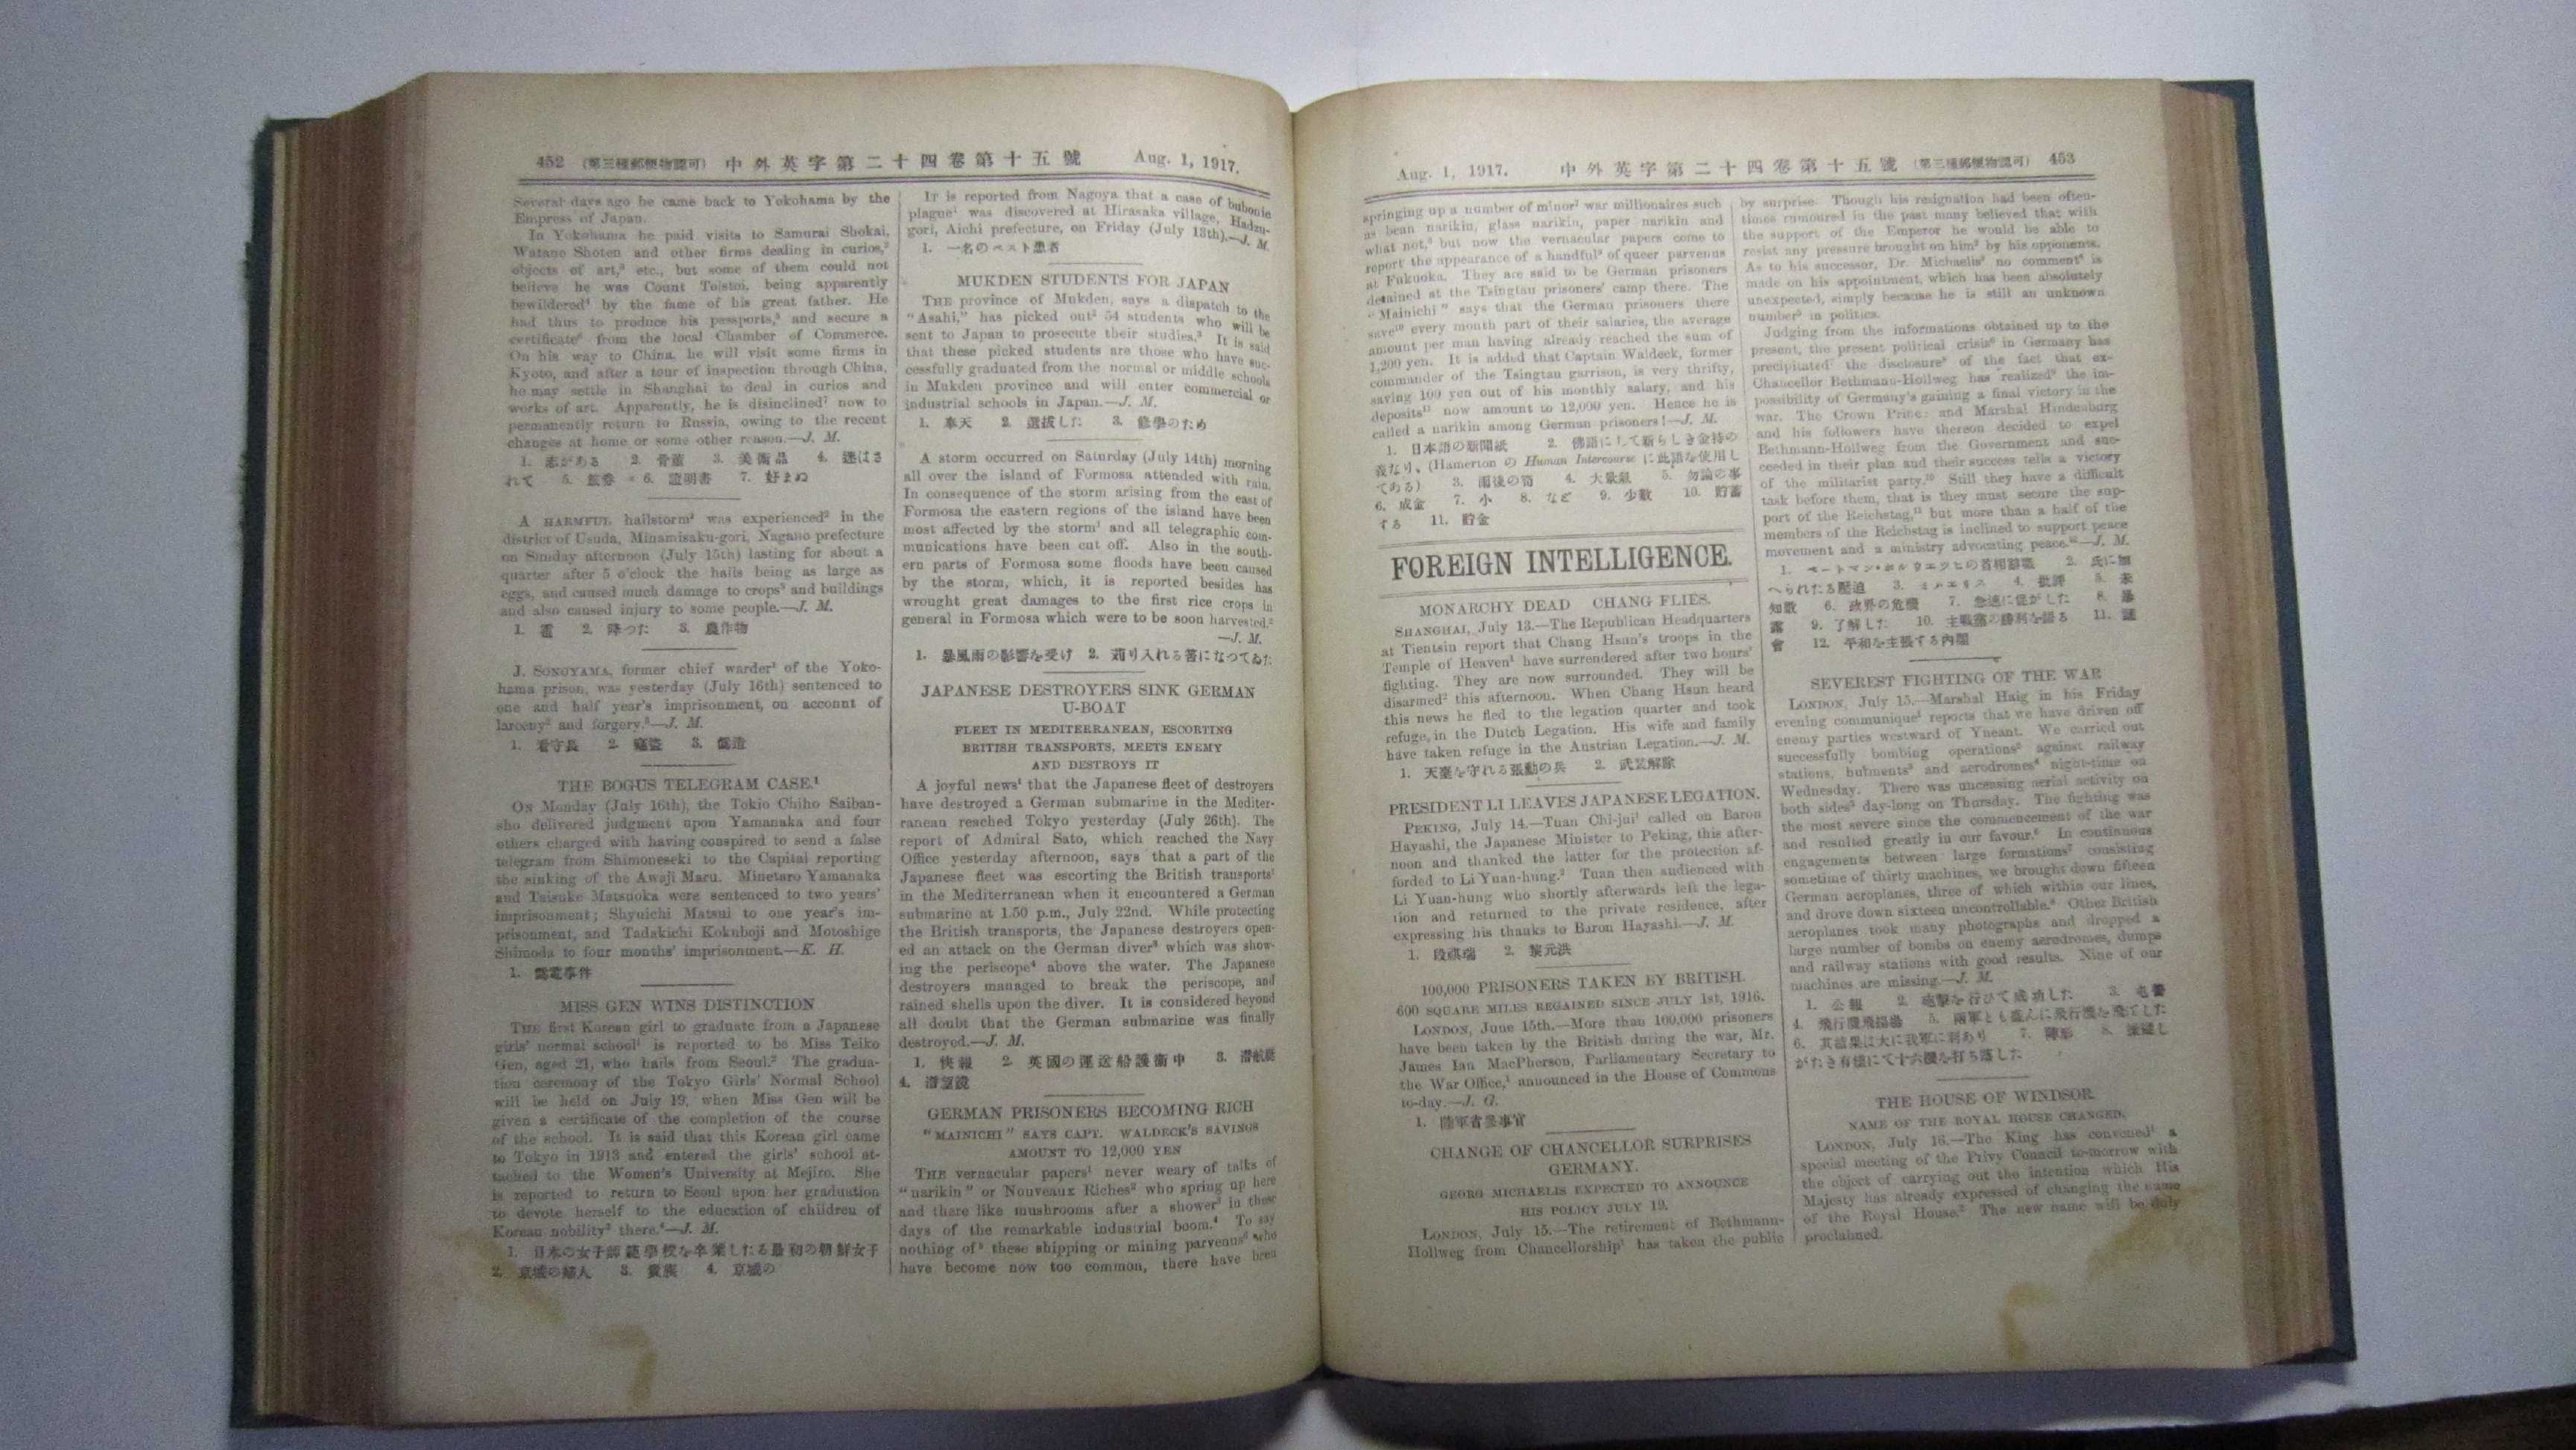 452 (第三種郵便物認可) 中外英字第二十四卷第十五號 Aug. 1, 1917.
Several days ago he came back to Yokohama by the
Empress of Japan.
In Yokohama he paid visits to Samurai Shokai,
Watano Shoten and other firms dealing in curios,²
objects of art,³ etc., but some of them could not
believe he was Count Tolstoi, being apparently
bewildered⁴ by the fame of his great father. He
had thus to produce his passports,⁵ and secure a
certificate⁶ from the local Chamber of Commerce.
On his way to China, he will visit some firms in
Kyoto, and after a tour of inspection through China,
he may settle in Shanghai to deal in curios and
works of art. Apparently, he is disinclined⁷ now to
permanently return to Russia, owing to the recent
changes at home or some other reason.—J. M.
1. 志がある 2. 骨董 3. 美術品 4. 迷はさ
れて 5. 旅券 6. 證明書 7. 好まぬ
A HARMFUL hailstorm¹ was experienced² in the
district of Usuda, Minamisaku-gori, Nagano prefecture
on Sunday afternoon (July 15th) lasting for about a
quarter after 5 o'clock the hails being as large as
eggs, and caused much damage to crops³ and buildings
and also caused injury to some people.—J. M.
1. 雹 2. 降つた 3. 農作物
J. SONOYAMA, former chief warder¹ of the Yoko-
hama prison, was yesterday (July 16th) sentenced to
one and half year's imprisonment, on account of
larceny² and forgery.³—J. M.
1. 看守長 2. 竊盜 3. 僞造
THE BOGUS TELEGRAM CASE.¹
On Monday (July 16th), the Tokio Chiho Saiban-
sho delivered judgment upon Yamanaka and four
others charged with having conspired to send a false
telegram from Shimoneseki to the Capital reporting
the sinking of the Awaji Maru. Minetaro Yamanaka
and Taisuke Matsuoka were sentenced to two years'
imprisonment; Shyuichi Matsui to one year's im-
prisonment, and Tadakichi Kokuboji and Motoshige
Shimoda to four months' imprisonment.—K. H.
1. 僞電事件
MISS GEN WINS DISTINCTION
THE first Korean girl to graduate from a Japanese
girls' normal school¹ is reported to be Miss Teiko
Gen, aged 21, who hails from Seoul.² The gradua-
tion ceremony of the Tokyo Girls' Normal School
will be held on July 19, when Miss Gen will be
given a certificate of the completion of the course
of the school. It is said that this Korean girl came
to Tokyo in 1913 and entered the girls' school at-
tached to the Women's University at Mejiro. She
is reported to return to Seoul upon her graduation
to devote herself to the education of children of
Korean nobility³ there.⁴—J. M.
1. 日本の女子師範學校を卒業したる最初の朝鮮女子
2. 京城の婦人 3. 貴族 4. 京城の
IT is reported from Nagoya that a case of bubonic
plague¹ was discovered at Hirasaka village, Hadzu-
gori, Aichi prefecture, on Friday (July 13th).—J. M.
1. 一名のペスト患者
MUKDEN STUDENTS FOR JAPAN
THE province of Mukden, says a dispatch to the
"Asahi," has picked out² 54 students who will be
sent to Japan to prosecute their studies.³ It is said
that these picked students are those who have suc-
cessfully graduated from the normal or middle schools
in Mukden province and will enter commercial or
industrial schools in Japan.—J. M.
1. 奉天 2. 選拔した 3. 修學のため
A storm occurred on Saturday (July 14th) morning
all over the island of Formosa attended with rain.
In consequence of the storm arising from the east of
Formosa the eastern regions of the island have been
most affected by the storm¹ and all telegraphic com-
munications have been cut off. Also in the south-
ern parts of Formosa some floods have been caused
by the storm, which, it is reported besides has
wrought great damages to the first rice crops in
general in Formosa which were to be soon harvested.²
—J. M.
1. 暴風雨の影響を受け 2. 苅り入れる筈になつてゐた
JAPANESE DESTROYERS SINK GERMAN
U-BOAT
FLEET IN MEDITERRANEAN, ESCORTING
BRITISH TRANSPORTS, MEETS ENEMY
AND DESTROYS IT
A joyful news¹ that the Japanese fleet of destroyers
have destroyed a German submarine in the Mediter-
ranean reached Tokyo yesterday (July 26th). The
report of Admiral Sato, which reached the Navy
Office yesterday afternoon, says that a part of the
Japanese fleet was escorting the British transports²
in the Mediterranean when it encountered a German
submarine at 1.50 p.m., July 22nd. While protecting
the British transports, the Japanese destroyers open-
ed an attack on the German diver³ which was show-
ing the periscope⁴ above the water. The Japanese
destroyers managed to break the periscope, and
rained shells upon the diver. It is considered beyond
all doubt that the German submarine was finally
destroyed.—J. M.
1. 快報 2. 英國の運送船護衞中 3. 潜航艇
4. 潜望鏡
GERMAN PRISONERS BECOMING RICH
"MAINICHI" SAYS CAPT. WALDECK'S SAVINGS
AMOUNT TO 12,000 YEN
THE vernacular papers¹ never weary of talks of
"narikin" or Nouveaux Riches² who spring up here
and there like mushrooms after a shower³ in these
days of the remarkable industrial boom.⁴ To say
nothing of⁵ these shipping or mining parvenus⁶ who
have become now too common, there have been
Aug. 1, 1917. 中外英字第二十四卷第十五號 (第三種郵便物認可) 453
springing up a number of minor⁷ war millionaires such
as bean narikin, glass narikin, paper narikin and
what not,⁸ but now the vernacular papers come to
report the appearance of a handful⁹ of queer parvenus
at Fukuoka. They are said to be German prisoners
detained at the Tsingtau prisoners' camp there. The
"Mainichi" says that the German prisoners there
save¹⁰ every month part of their salaries, the average
amount per man having already reached the sum of
1,200 yen. It is added that Captain Waldeck, former
commander of the Tsingtau garrison, is very thrifty,
saving 100 yen out of his monthly salary, and his
deposits¹¹ now amount to 12,000 yen. Hence he is
called a narikin among German prisoners!—J. M.
1. 日本語の新聞紙 2. 佛語にして新らしき金持の
義なり、(Hamerton の Human Intercourse に此語を使用し
てある) 3. 雨後の筍 4. 大歇 5. 勿論の事
6. 成金 7. 小 8. など 9. 少數 10. 貯蓄
する 11. 貯金
FOREIGN INTELLIGENCE.
MONARCHY DEAD CHANG FLIES.
SHANGHAI, July 13.—The Republican Headquarters
at Tientsin report that Chang Hsun's troops in the
Temple of Heaven¹ have surrendered after two hours'
fighting. They are now surrounded. They will be
disarmed² this afternoon. When Chang Hsun heard
this news he fled to the legation quarter and took
refuge, in the Dutch Legation. His wife and family
have taken refuge in the Austrian Legation.—J. M.
1. 天臺を守れる張勳の兵 2. 武裝解除
PRESIDENT LI LEAVES JAPANESE LEGATION.
PEKING, July 14.—Tuan Chi-jui¹ called on Baron
Hayashi, the Japanese Minister to Peking, this after-
noon and thanked the latter for the protection af-
forded to Li Yuan-hung.² Tuan then audienced with
Li Yuan-hung who shortly afterwards left the lega-
tion and returned to the private residence, after
expressing his thanks to Baron Hayashi.—J. M.
1. 段祺瑞 2. 黎元洪
100,000 PRISONERS TAKEN BY BRITISH.
600 SQUARE MILES REGAINED SINCE JULY 1st, 1916.
LONDON, June 15th.—More than 100,000 prisoners
have been taken by the British during the war, Mr.
James Ian MacPherson, Parliamentary Secretary to
the War Office,¹ announced in the House of Commons
to-day.—J. G.
1. 陸軍省參事官
CHANGE OF CHANCELLOR SURPRISES
GERMANY.
GEORG MICHAELIS EXPECTED TO ANNOUNCE
HIS POLICY JULY 19.
LONDON, July 15.—The retirement of Bethmann-
Hollweg from Chancellorship¹ has taken the public
by surprise. Though his resignation had been often-
times rumoured in the past many believed that with
the support of the Emperor he would be able to
resist any pressure brought on him² by his opponents.
As to his successor, Dr. Michaelis³ no comment⁴ is
made on his appointment, which has been absolutely
unexpected, simply because he is still an unknown
number⁵ in politics.
Judging from the informations obtained up to the
present, the present political crisis⁶ in Germany has
precipitated⁷ the disclosure⁸ of the fact that ex-
Chancellor Bethmann-Hollweg has realized⁹ the im-
possibility of Germany's gaining a final victory in the
war. The Crown Prince and Marshal Hindenburg
and his followers have thereon decided to expel
Bethmann-Hollweg from the Government and suc-
ceeded in their plan and their success tells a victory
of the militarist party.¹⁰ Still they have a difficult
task before them, that is they must secure the sup-
port of the Reichstag,¹¹ but more than a half of the
members of the Reichstag is inclined to support peace
movement and a ministry advocating peace.¹²—J. M.
1. ベートマン・ホルウエッヒの首相辭職 2. 氏に加
へられたる壓迫 3. ミハエリス 4. 批評 5. 未
知數 6. 政界の危機 7. 急速に促がした 8. 暴
露 9. 了解した 10. 主戰黨の勝利を語る 11. 議
會 12. 平和を主張する內閣
SEVEREST FIGHTING OF THE WAR
LONDON, July 15.—Marshal Haig in his Friday
evening communique¹ reports that we have driven off
enemy parties westward of Yneant. We carried out
successfully bombing operations² against railway
stations, hutments³ and aerodromes⁴ night-time on
Wednesday. There was unceasing aerial activity on
both sides⁵ day-long on Thursday. The fighting was
the most severe since the commencement of the war
and resulted greatly in our favour.⁶ In continuous
engagements between large formations⁷ consisting
sometime of thirty machines, we brought down fifteen
German aeroplanes, three of which within our lines,
and drove down sixteen uncontrollable.⁸ Other British
aeroplanes took many photographs and dropped a
large number of bombs on enemy aerodromes, dumps
and railway stations with good results. Nine of our
machines are missing.—J. M.
1. 公報 2. 砲擊を行ひて成功した 3. 屯營
4. 飛行機飛揚場 5. 兩軍とも盛んに飛行機を飛した
6. 其結果は大に我軍に利あり 7. 陣形 8. 操縱し
がたき有樣にて十六機を打ち落した
THE HOUSE OF WINDSOR.
NAME OF THE ROYAL HOUSE CHANGED.
LONDON, July 16.—The King has convened¹ a
special meeting of the Privy Council to-morrow with
the object of carrying out the intention which His
Majesty has already expressed of changing the name
of the Royal House.² The new name will be duly
proclaimed.